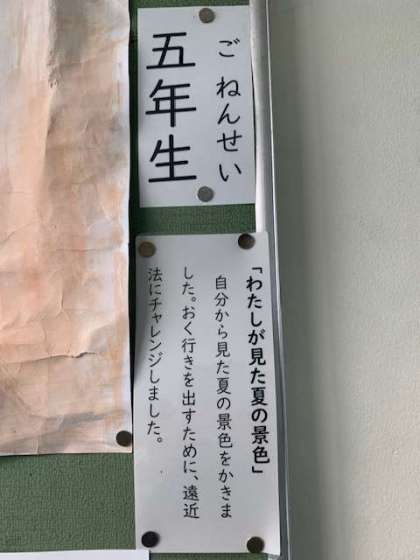 ごねんせい
五年生
「わたしが見た夏の景色」
自分から見た夏の景色をかきま
した。おく行きを出すために、遠近
法にチャレンジしました。